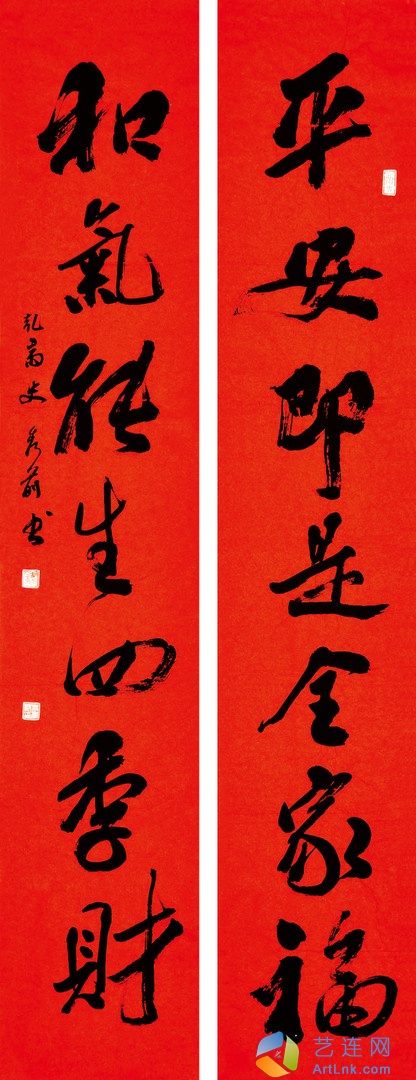 平安即是全家福
和氣能生四季財
艺连网
ArtLnk.com